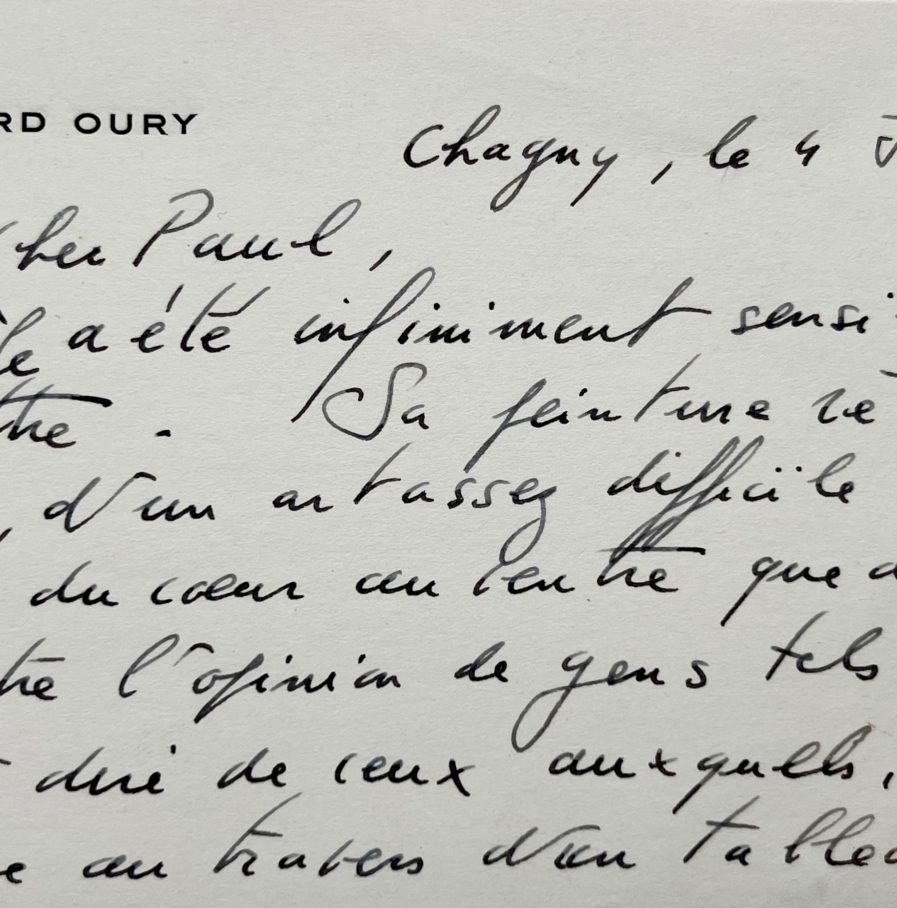 RD OURY
Chagny, le 4 J
cher Paul,
le a été infiniment sensi
tre. Sa peinture re
, d'un art assez difficile
du cœur au ventre que d
tre l'opinion de gens tels
dire de ceux auxquels,
e au travers d'un tablea